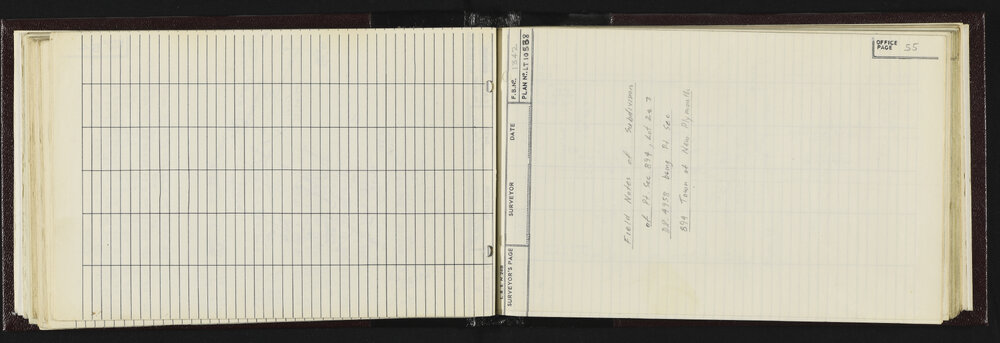 OFFICE
PAGE 55
F.B. Nº. 1342
PLAN Nº. LT 10538
DATE
SURVEYOR
SURVEYOR'S PAGE
Field Notes of Subdivision
of Pt Sec 894, Lot 2 & 3
D.P. 4958 being Pt Sec
894 Town of New Plymouth